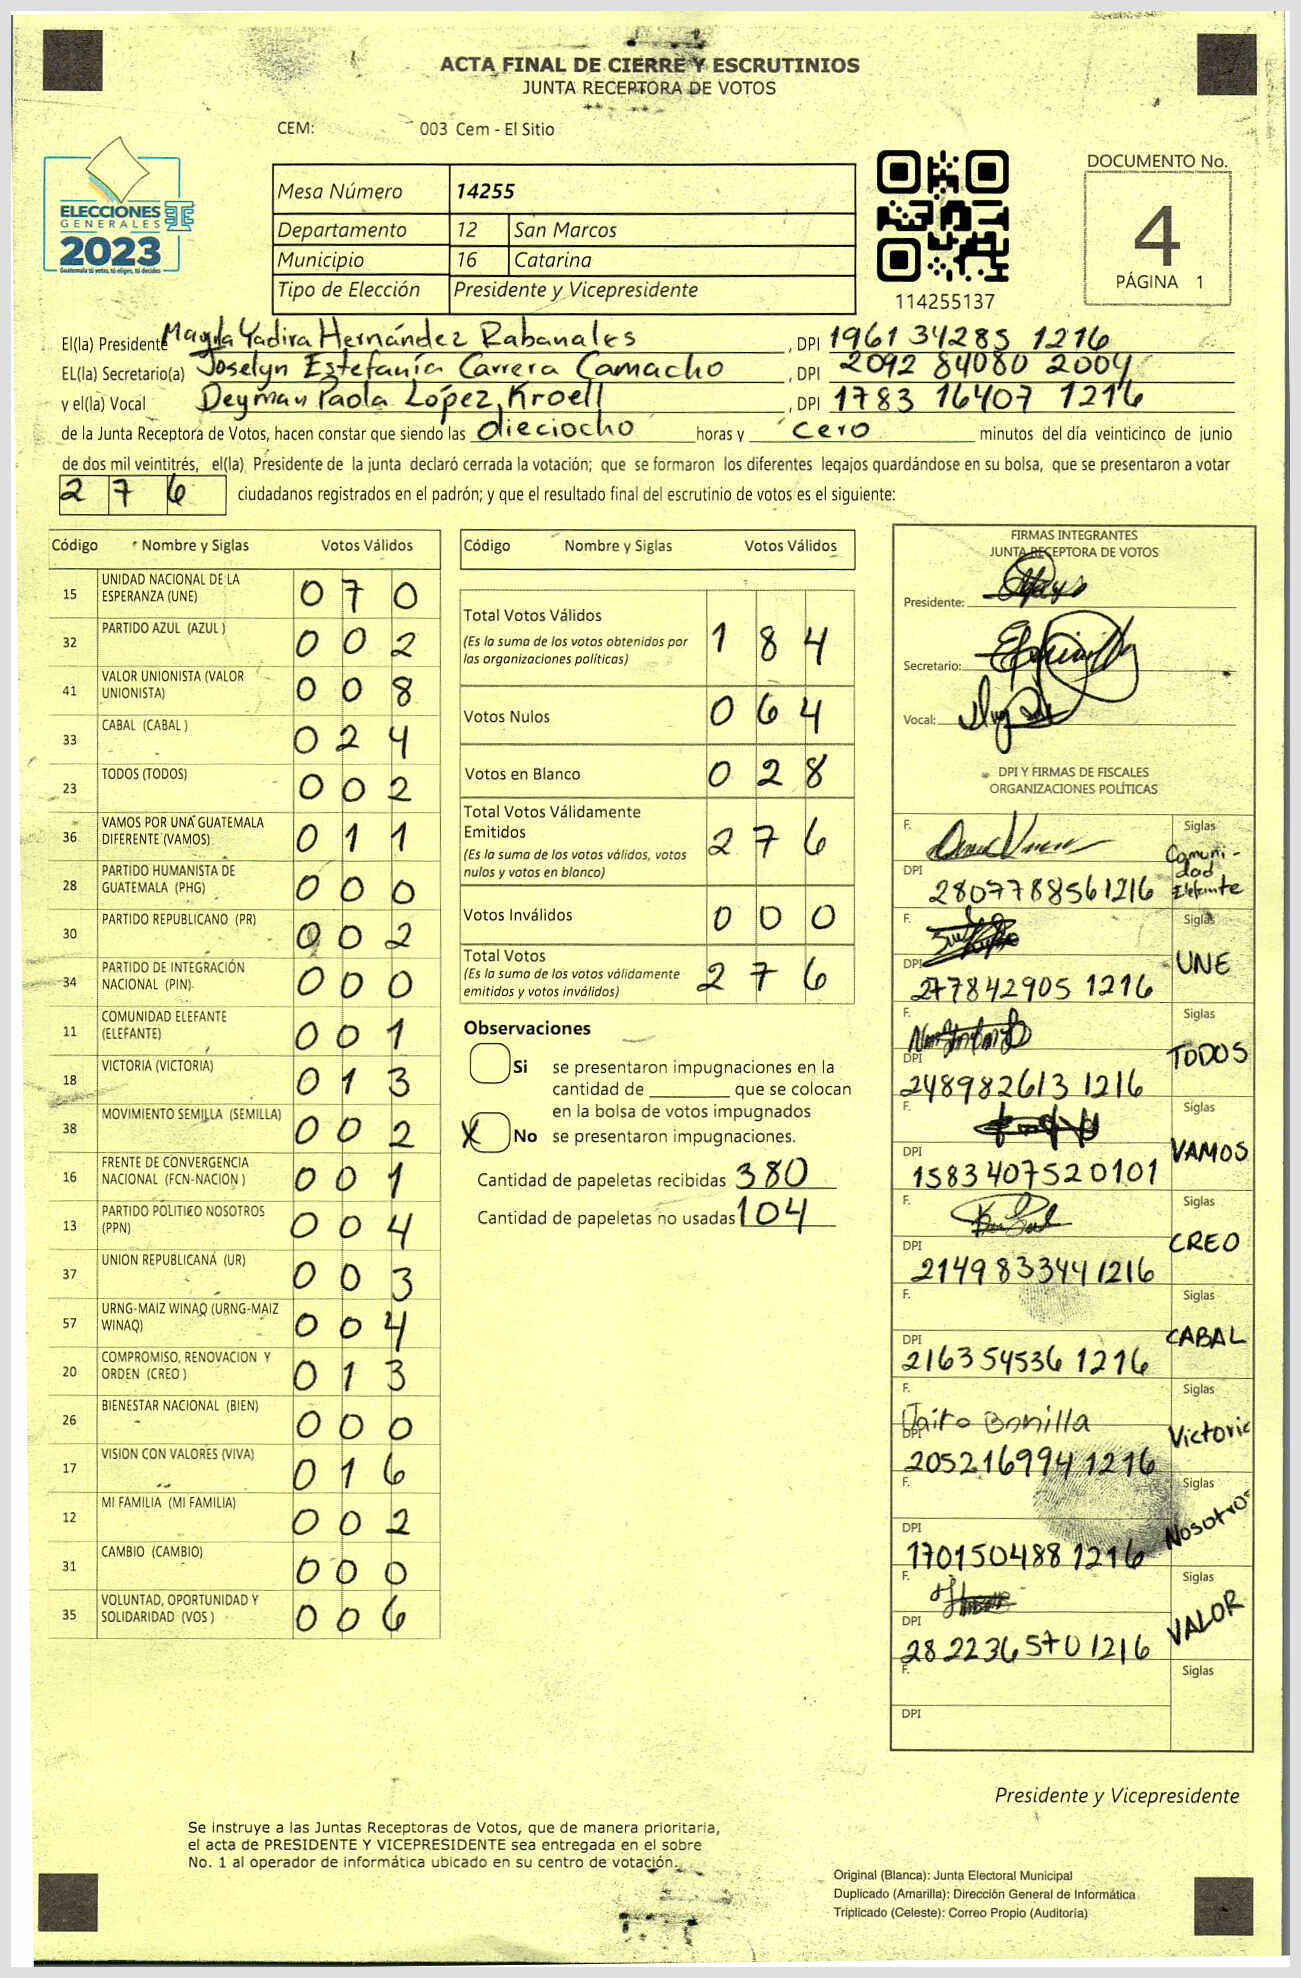 ACTA FINAL DE CIERRE Y ESCRUTINIOS
JUNTA RECEPTORA DE VOTOS
CEM: 003 Cem - El Sitio
ELECCIONES
GENERALES
2023
Guatemala tú votas, tú eliges, tú decides
Mesa Número 14255
Departamento 12 San Marcos
Municipio 16 Catarina
Tipo de Elección Presidente y Vicepresidente
114255137
DOCUMENTO No.
4
PÁGINA 1
El(la) Presidente Mayda Yadira Hernández Rabanales, DPI 1961 34285 1216
EL(la) Secretario(a) Joselyn Estefanía Carrera Camacho, DPI 2092 84080 2004
y el(la) Vocal Deyman Paola López Kroell, DPI 1783 16407 1216
de la Junta Receptora de Votos, hacen constar que siendo las dieciocho horas y cero minutos del día veinticinco de junio
de dos mil veintitrés, el(la) Presidente de la junta declaró cerrada la votación; que se formaron los diferentes legajos guardándose en su bolsa, que se presentaron a votar
276 ciudadanos registrados en el padrón; y que el resultado final del escrutinio de votos es el siguiente:
Código Nombre y Siglas Votos Válidos
15 UNIDAD NACIONAL DE LA ESPERANZA (UNE) 070
32 PARTIDO AZUL (AZUL ) 002
41 VALOR UNIONISTA (VALOR UNIONISTA) 008
33 CABAL (CABAL ) 024
23 TODOS (TODOS) 002
36 VAMOS POR UNA GUATEMALA DIFERENTE (VAMOS) 011
28 PARTIDO HUMANISTA DE GUATEMALA (PHG) 000
30 PARTIDO REPUBLICANO (PR) 002
34 PARTIDO DE INTEGRACIÓN NACIONAL (PIN) 000
11 COMUNIDAD ELEFANTE (ELEFANTE) 001
18 VICTORIA (VICTORIA) 013
38 MOVIMIENTO SEMILLA (SEMILLA) 002
16 FRENTE DE CONVERGENCIA NACIONAL (FCN-NACION ) 001
13 PARTIDO POLITICO NOSOTROS (PPN) 004
37 UNION REPUBLICANA (UR) 003
57 URNG-MAIZ WINAQ (URNG-MAIZ WINAQ) 004
20 COMPROMISO, RENOVACION Y ORDEN (CREO ) 013
26 BIENESTAR NACIONAL (BIEN) 000
17 VISION CON VALORES (VIVA) 016
12 MI FAMILIA (MI FAMILIA) 002
31 CAMBIO (CAMBIO) 000
35 VOLUNTAD, OPORTUNIDAD Y SOLIDARIDAD (VOS ) 006
Código Nombre y Siglas Votos Válidos
Total Votos Válidos 184
(Es la suma de los votos obtenidos por
las organizaciones políticas)
Votos Nulos 064
Votos en Blanco 028
Total Votos Válidamente
Emitidos 276
(Es la suma de los votos válidos, votos
nulos y votos en blanco)
Votos Inválidos 000
Total Votos 276
(Es la suma de los votos válidamente
emitidos y votos inválidos)
Observaciones
Si se presentaron impugnaciones en la
cantidad de ________ que se colocan
en la bolsa de votos impugnados
X No se presentaron impugnaciones.
Cantidad de papeletas recibidas 380
Cantidad de papeletas no usadas 104
FIRMAS INTEGRANTES
JUNTA RECEPTORA DE VOTOS
Presidente:
Secretario:
Vocal:
DPI Y FIRMAS DE FISCALES
ORGANIZACIONES POLÍTICAS
F. Siglas Comunidad Elefante
DPI 2807788561216
F. Siglas UNE
DPI 277842905 1216
F. Siglas TODOS
DPI 248982613 1216
F. Siglas VAMOS
DPI 1583407520101
F. Siglas CREO
DPI 2149833441216
F. Siglas CABAL
DPI 216354536 1216
F. Jairo Bonilla Siglas Victoria
DPI 205216994 1216
F. Siglas Nosotros
DPI 170150488 1216
F. Siglas VALOR
DPI 282236570 1216
F. Siglas
DPI
Presidente y Vicepresidente
Se instruye a las Juntas Receptoras de Votos, que de manera prioritaria,
el acta de PRESIDENTE Y VICEPRESIDENTE sea entregada en el sobre
No. 1 al operador de informática ubicado en su centro de votación.
Original (Blanca): Junta Electoral Municipal
Duplicado (Amarilla): Dirección General de Informática
Triplicado (Celeste): Correo Propio (Auditoría)